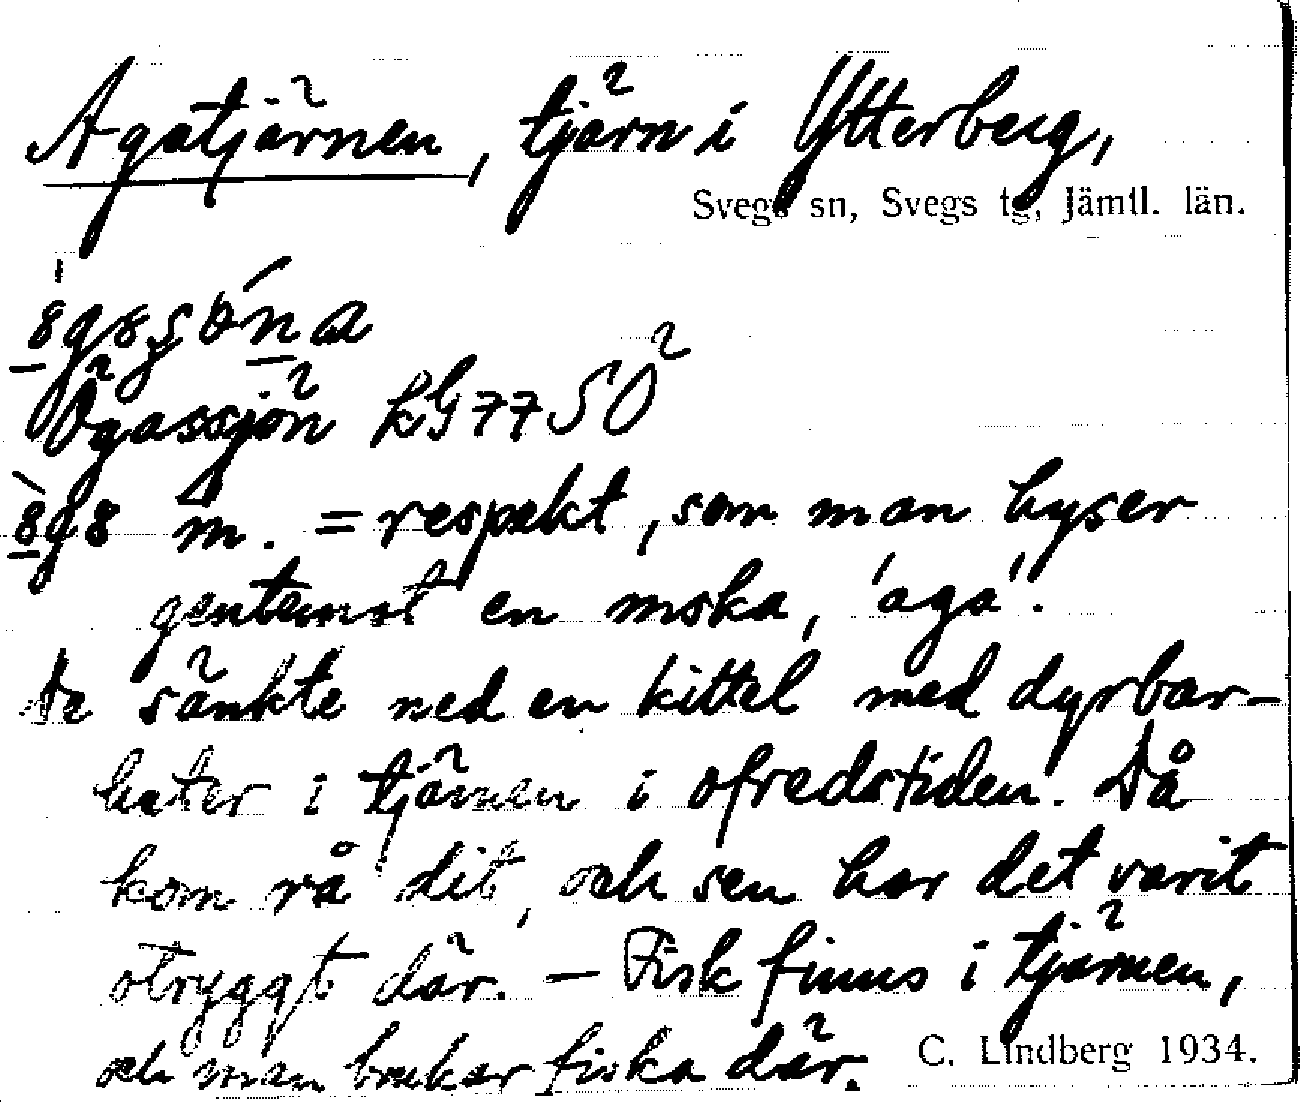 Agatjärnen, tjärn i Ytterberg,
Svegs sn, Svegs tg, Jämtl. län.
Ögassjön kG 7750
m. = respekt, som man hyser
gentemot en mska, 'aga'.
De sänkte ned en kittel med dyrbar-
heter i tjärnen i ofredstiden. Då
kom rå dit, och sen har det varit
otryggt där. – Fisk finns i tjärnen,
och man brukar fiska där.
C. Lindberg 1934.